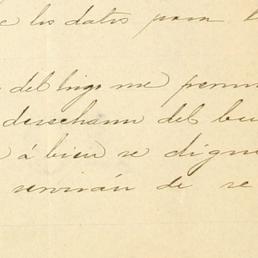 e los datos para l
del trigo me perm
desechann del bu
á bien se dign
servirán de se